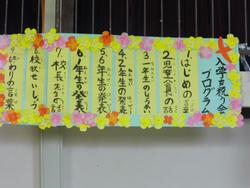 入学を祝う会
プログラム
1 はじめの言葉
2 児童会長の話
3 一年生のしょうかい
4 2年生の発表
5 6年生の発表
6 1年生の発表
7 校長先生の話
8 校歌せいしょう
9 おわりの言葉